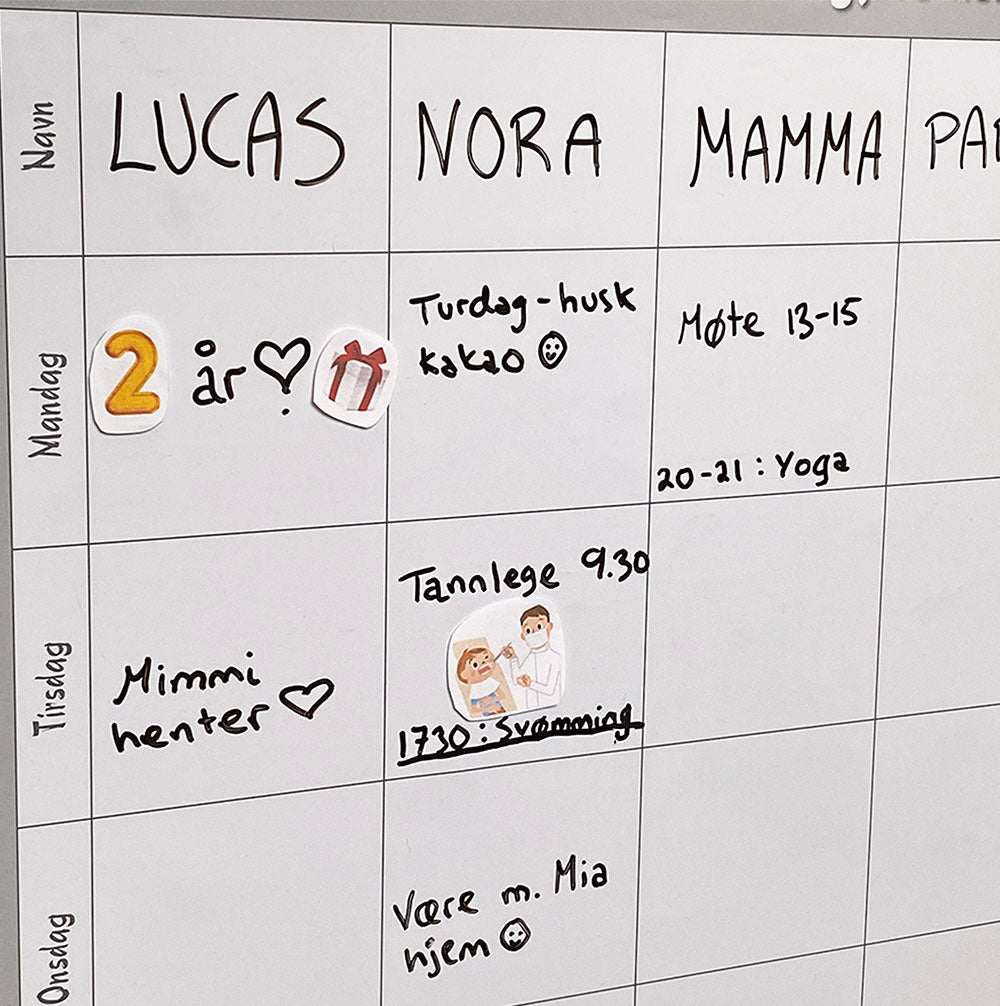 Navn
LUCAS
NORA
MAMMA
Mandag
2 år
Turdag - husk
kakao
Møte 13-15
20-21 : Yoga
Tirsdag
Mimmi
henter
Tannlege 9.30
1730 : Svømming
Onsdag
Være m. Mia
hjem